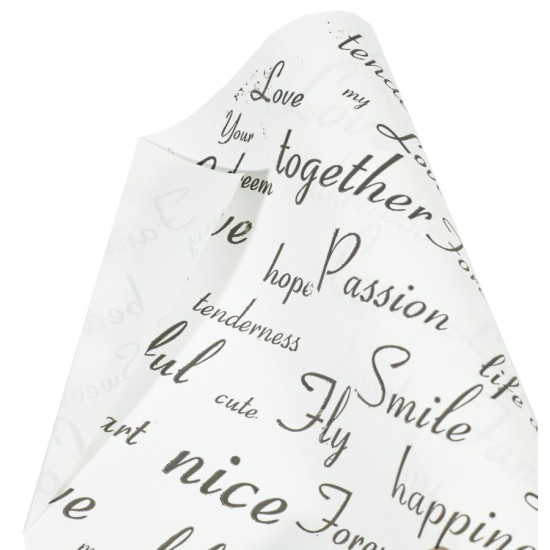 tend
Love
my
Lov
Your
together
eem
ve
hope
Passion
tenderness
life
ful
Smile
cute.
Fly
art
nice
happine
ve
Forev